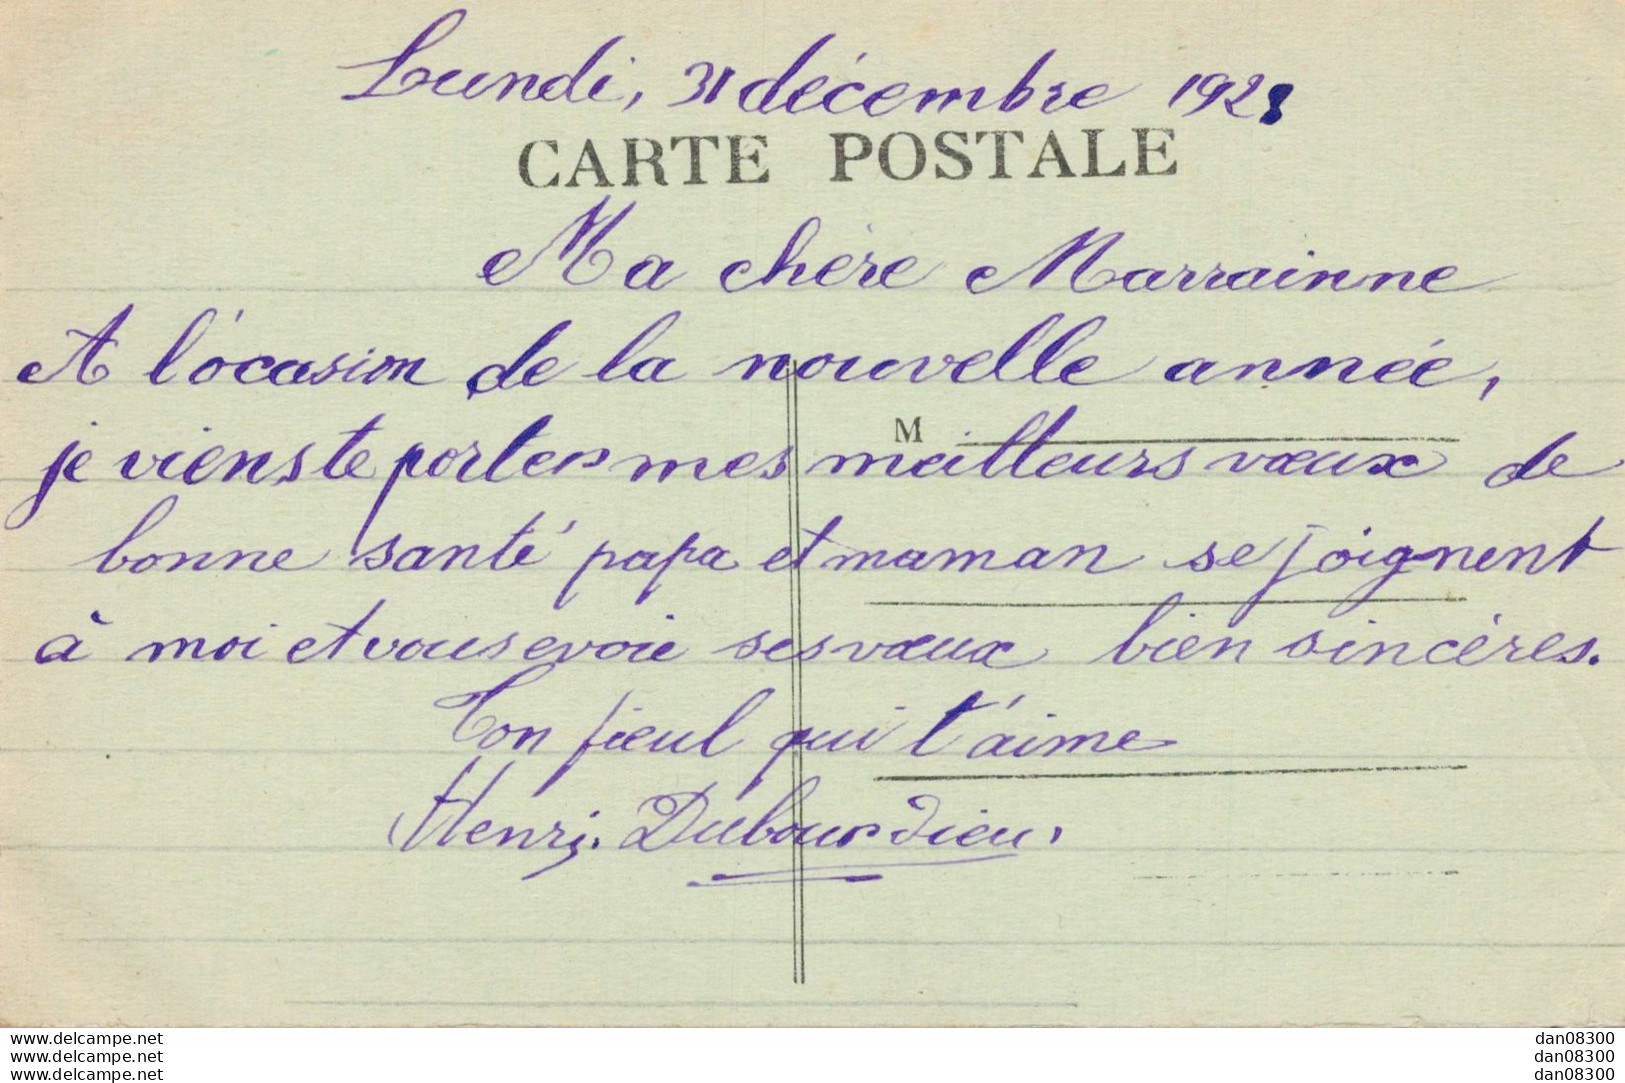 Lundi, 31 décembre 1928
CARTE POSTALE
Ma chère Marrainne
A l'ocasion de la nouvelle année,
je viens te porter mes meilleurs vœux de
M
bonne santé papa et maman se joignent
à moi et vous evoie ses vœux bien sincères.
Ton fieul qui t'aime
Henri. Dubourdieu.
www.delcampe.net
www.delcampe.net
www.delcampe.net
dan08300
dan08300
dan08300